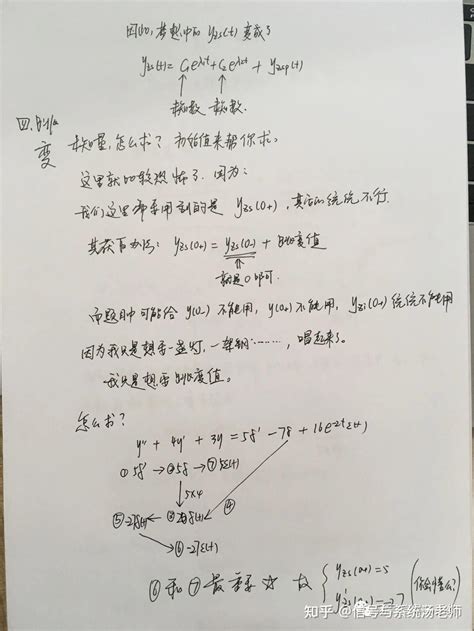 因此,梦想中的 yzs(t) 变成了
yzs(t) = C₁e^λ₁t + C₂e^λ₂t + yzsp(t)
未知数 未知数
四.
变 未知量,怎么求? 初始值来帮你求。
这里就比较恐怖了,因为:
我们这里需要用到的是 yzs(0+),其它的统统不行。
其获取办法: yzs(0+) = yzs(0-) + 跳变值
就是0即可.
而题目中可能给 y(0-) 不能用, y(0+) 不能用, yzi(0+) 统统不能用
因为我只是想要一盏灯,一……,唱起来了。
我只是想要跳变值。
怎么求?
y'' + 4y' + 3y = 5δ' - 7δ + 16e^-2t ε(t)
① 5δ' → ② 5δ → ⑦ 5ε(t)
5×4
⑤ -27δ(t) ← ③ 20δ(t) ④
⑥ -27ε(t)
⑥ 和 ⑦ 最重要 ☆ 故 { yzs(0+) = 5
y'zs(0+) = -27 (你会懂么?)
知乎 @信号与系统汤老师